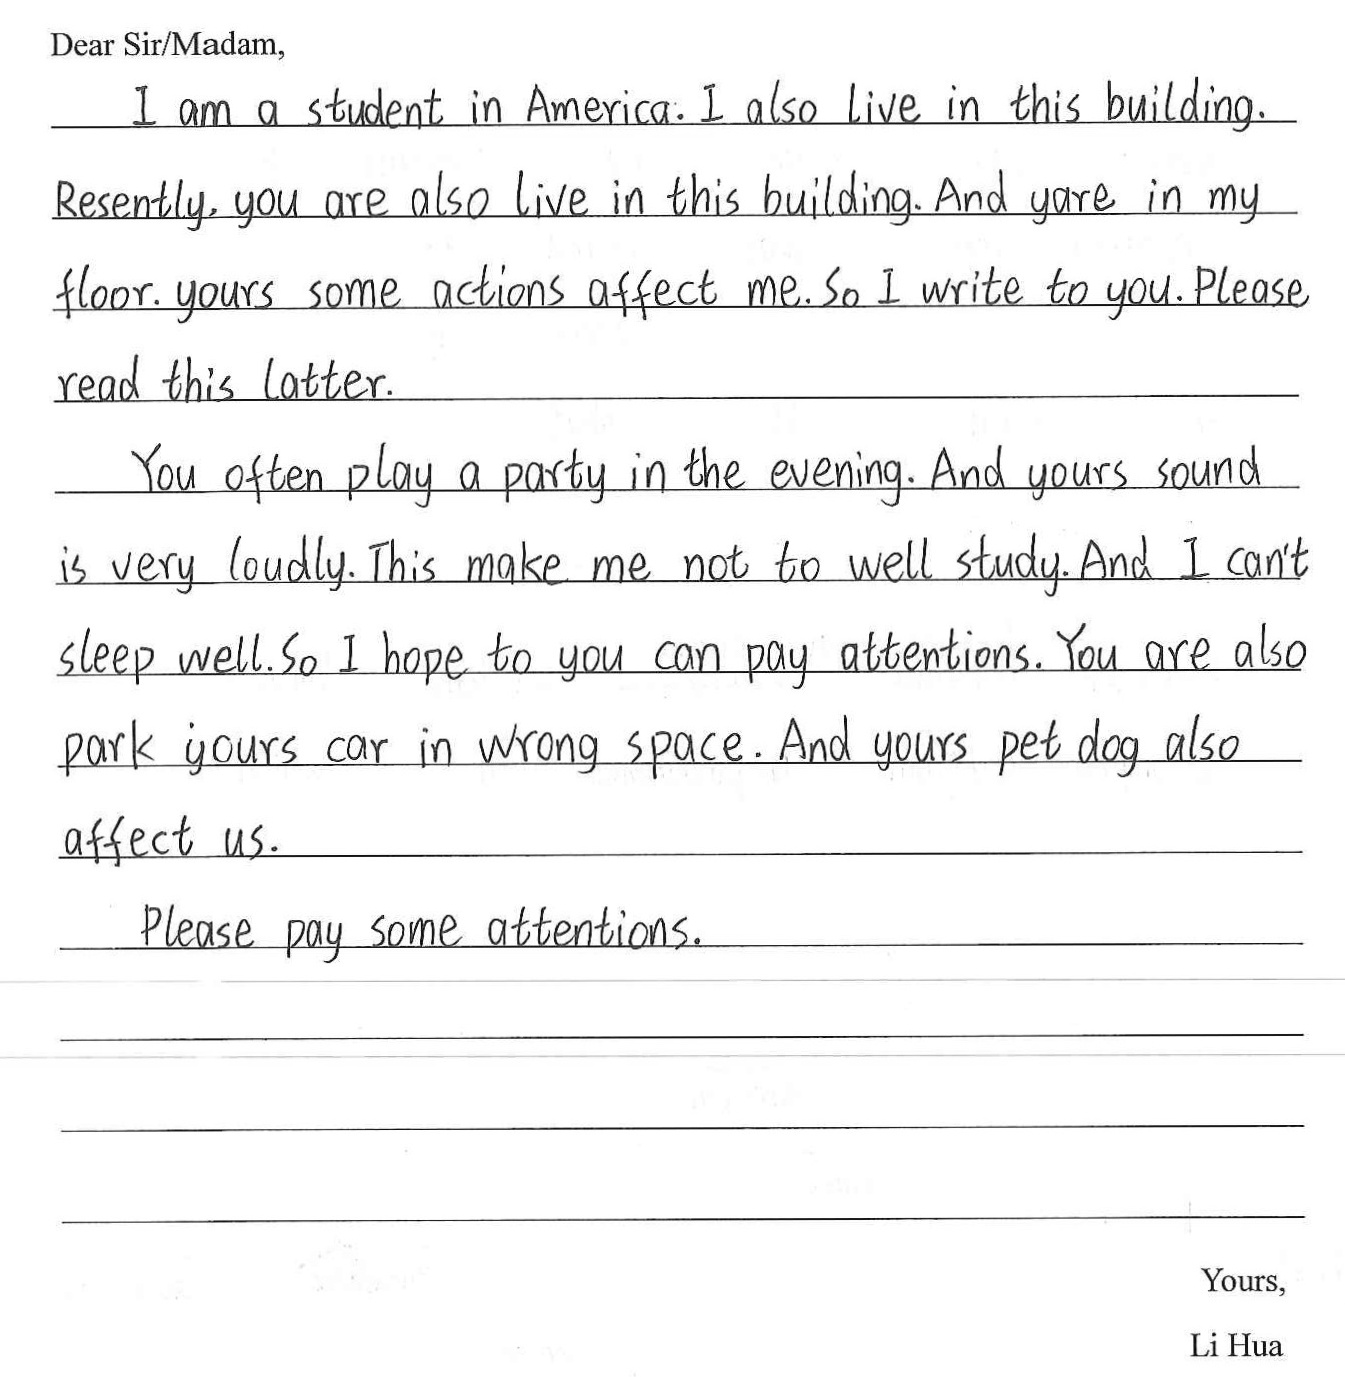 Dear Sir/Madam,
I am a student in America. I also live in this building.
Resently, you are also live in this building. And yare in my
floor. yours some actions affect me. So I write to you. Please
read this latter.
You often play a party in the evening. And yours sound
is very loudly. This make me not to well study. And I can't
sleep well. So I hope to you can pay attentions. You are also
park yours car in wrong space. And yours pet dog also
affect us.
Please pay some attentions.
Yours,
Li Hua